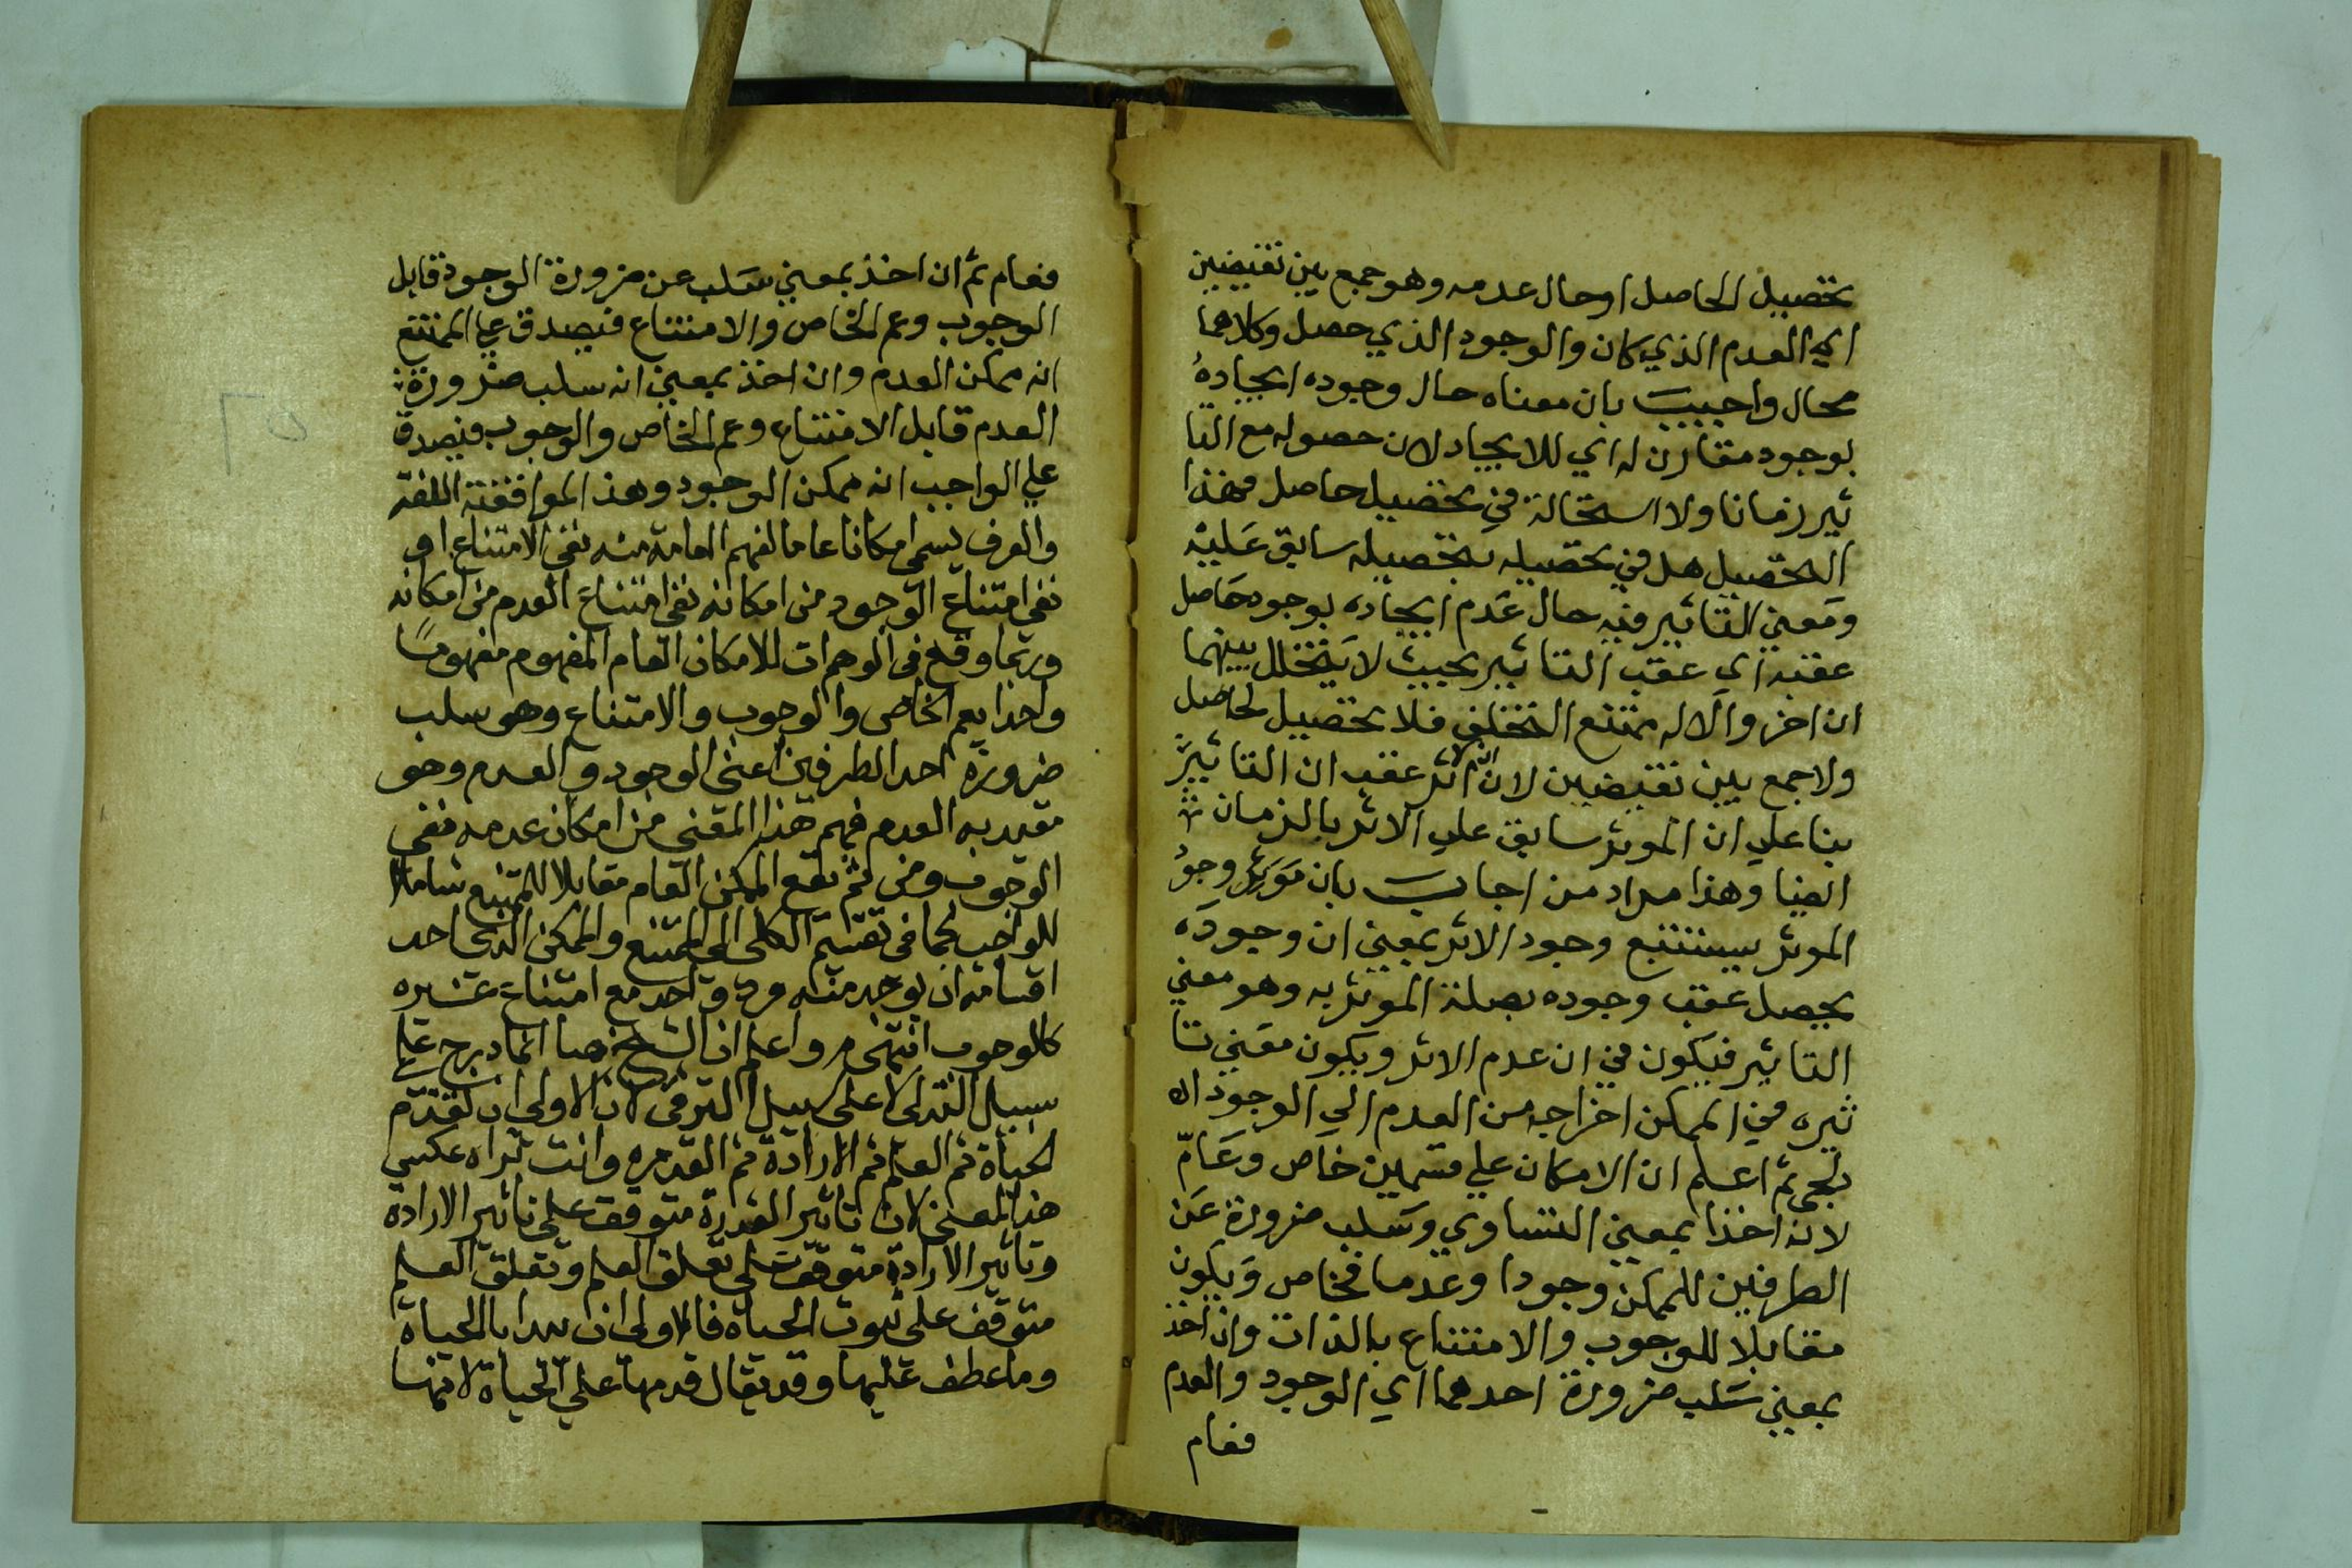 تحصيل الحاصل او حال عدمه وهو جمع بين نقيضين
اي العدم الذي كان والوجود الذي حصل وكلاهما
محال واجيب بان معناه حال وجوده ايجاده
بوجود مقارن له اي للايجاد لان حصوله مع التا
ثير زمانا ولا استحالة في تحصيل حاصل فهذا
التحصيل هل في تحصيله بتحصيله سابق عليه
ومعني التاثير فيه حال عدم ايجاده بوجود حاصل
عقبه اي عقب التاثير بحيث لا يتخلل بينهما
ان اخر والا له ممتنع التخلف فلا تحصيل لحاصل
ولا جمع بين نقيضين لان الاثر عقب ان التاثير
بنا علي ان الموثر سابق علي الاثر بالزمان
ايضا وهذا مراد من اجاب بان وجو
الموثر يستتبع وجود الاثر بمعني ان وجوده
يحصل عقب وجوده بصلة الموثر به وهو معني
التاثير فيكون في ان عدم الاثر ويكون معني تا
ثيره في الممكن اخراجه من العدم الي الوجود اه
يحي ثم اعلم ان الامكان علي قسمين خاص وعام
لانه اخذا بمعني التساوي وسلب ضرورة عن
الطرفين للممكن وجودا وعدما فخاص ويكون
مقابلا للوجوب والامتناع بالذات وان اخذ
بمعني سلب ضرورة احدهما اي الوجود والعدم
فعام
فعام ثم ان اخذ بمعني سلب عن ضرورة الوجود قابل
الوجوب وعم الخاص والامتناع فيصدق علي الممتنع
انه ممكن العدم وان اخذ بمعني انه سلب ضرورة
العدم قابل الامتناع وعم الخاص والوجوب فيصدق
علي الواجب انه ممكن الوجود وهذا الموافقته اللغة
والعرف يسمي امكانا عاما لفهم العامة منه نفي الامتناع او
نفي امتناع الوجود من امكانه نفي امتناع العدم من امكانه
وربما وقع في الوهمات للامكان العام المفهوم مفهوما
واحدا يعم الخاص والوجوب والامتناع وهو سلب
ضرورة احد الطرفين اعني الوجود والعدم وحو
تقيد به العدم فهم هذا المعني من امكان عدمه فنفي
الوجوب ومن ثم يقع الممكن العام مقابلا للممتنع شاملا
للواجب كما في تقسيم الكلي الي الممتنع والممكن الذي احد
اقسامه ان يوجد منه فرد واحد مع امتناع غيره
كالوجوب انتهي م ر واعلم ان الشيخ رضا انما درج علي
سبيل التدلي لا علي سبيل الترقي لان الاولي ان تقدم
الحياة ثم العلم ثم الارادة ثم القدرة وانت تراه عكس
هذا المعني لان تاثير القدرة متوقف علي تاثير الارادة
وتاثير الارادة متوقف علي تعلق العلم وتعلق العلم
متوقف علي ثبوت الحياة فالاولي ان يبدا بالحياة
وما عطف عليها وقد يقال قدمها علي الحياة لانها